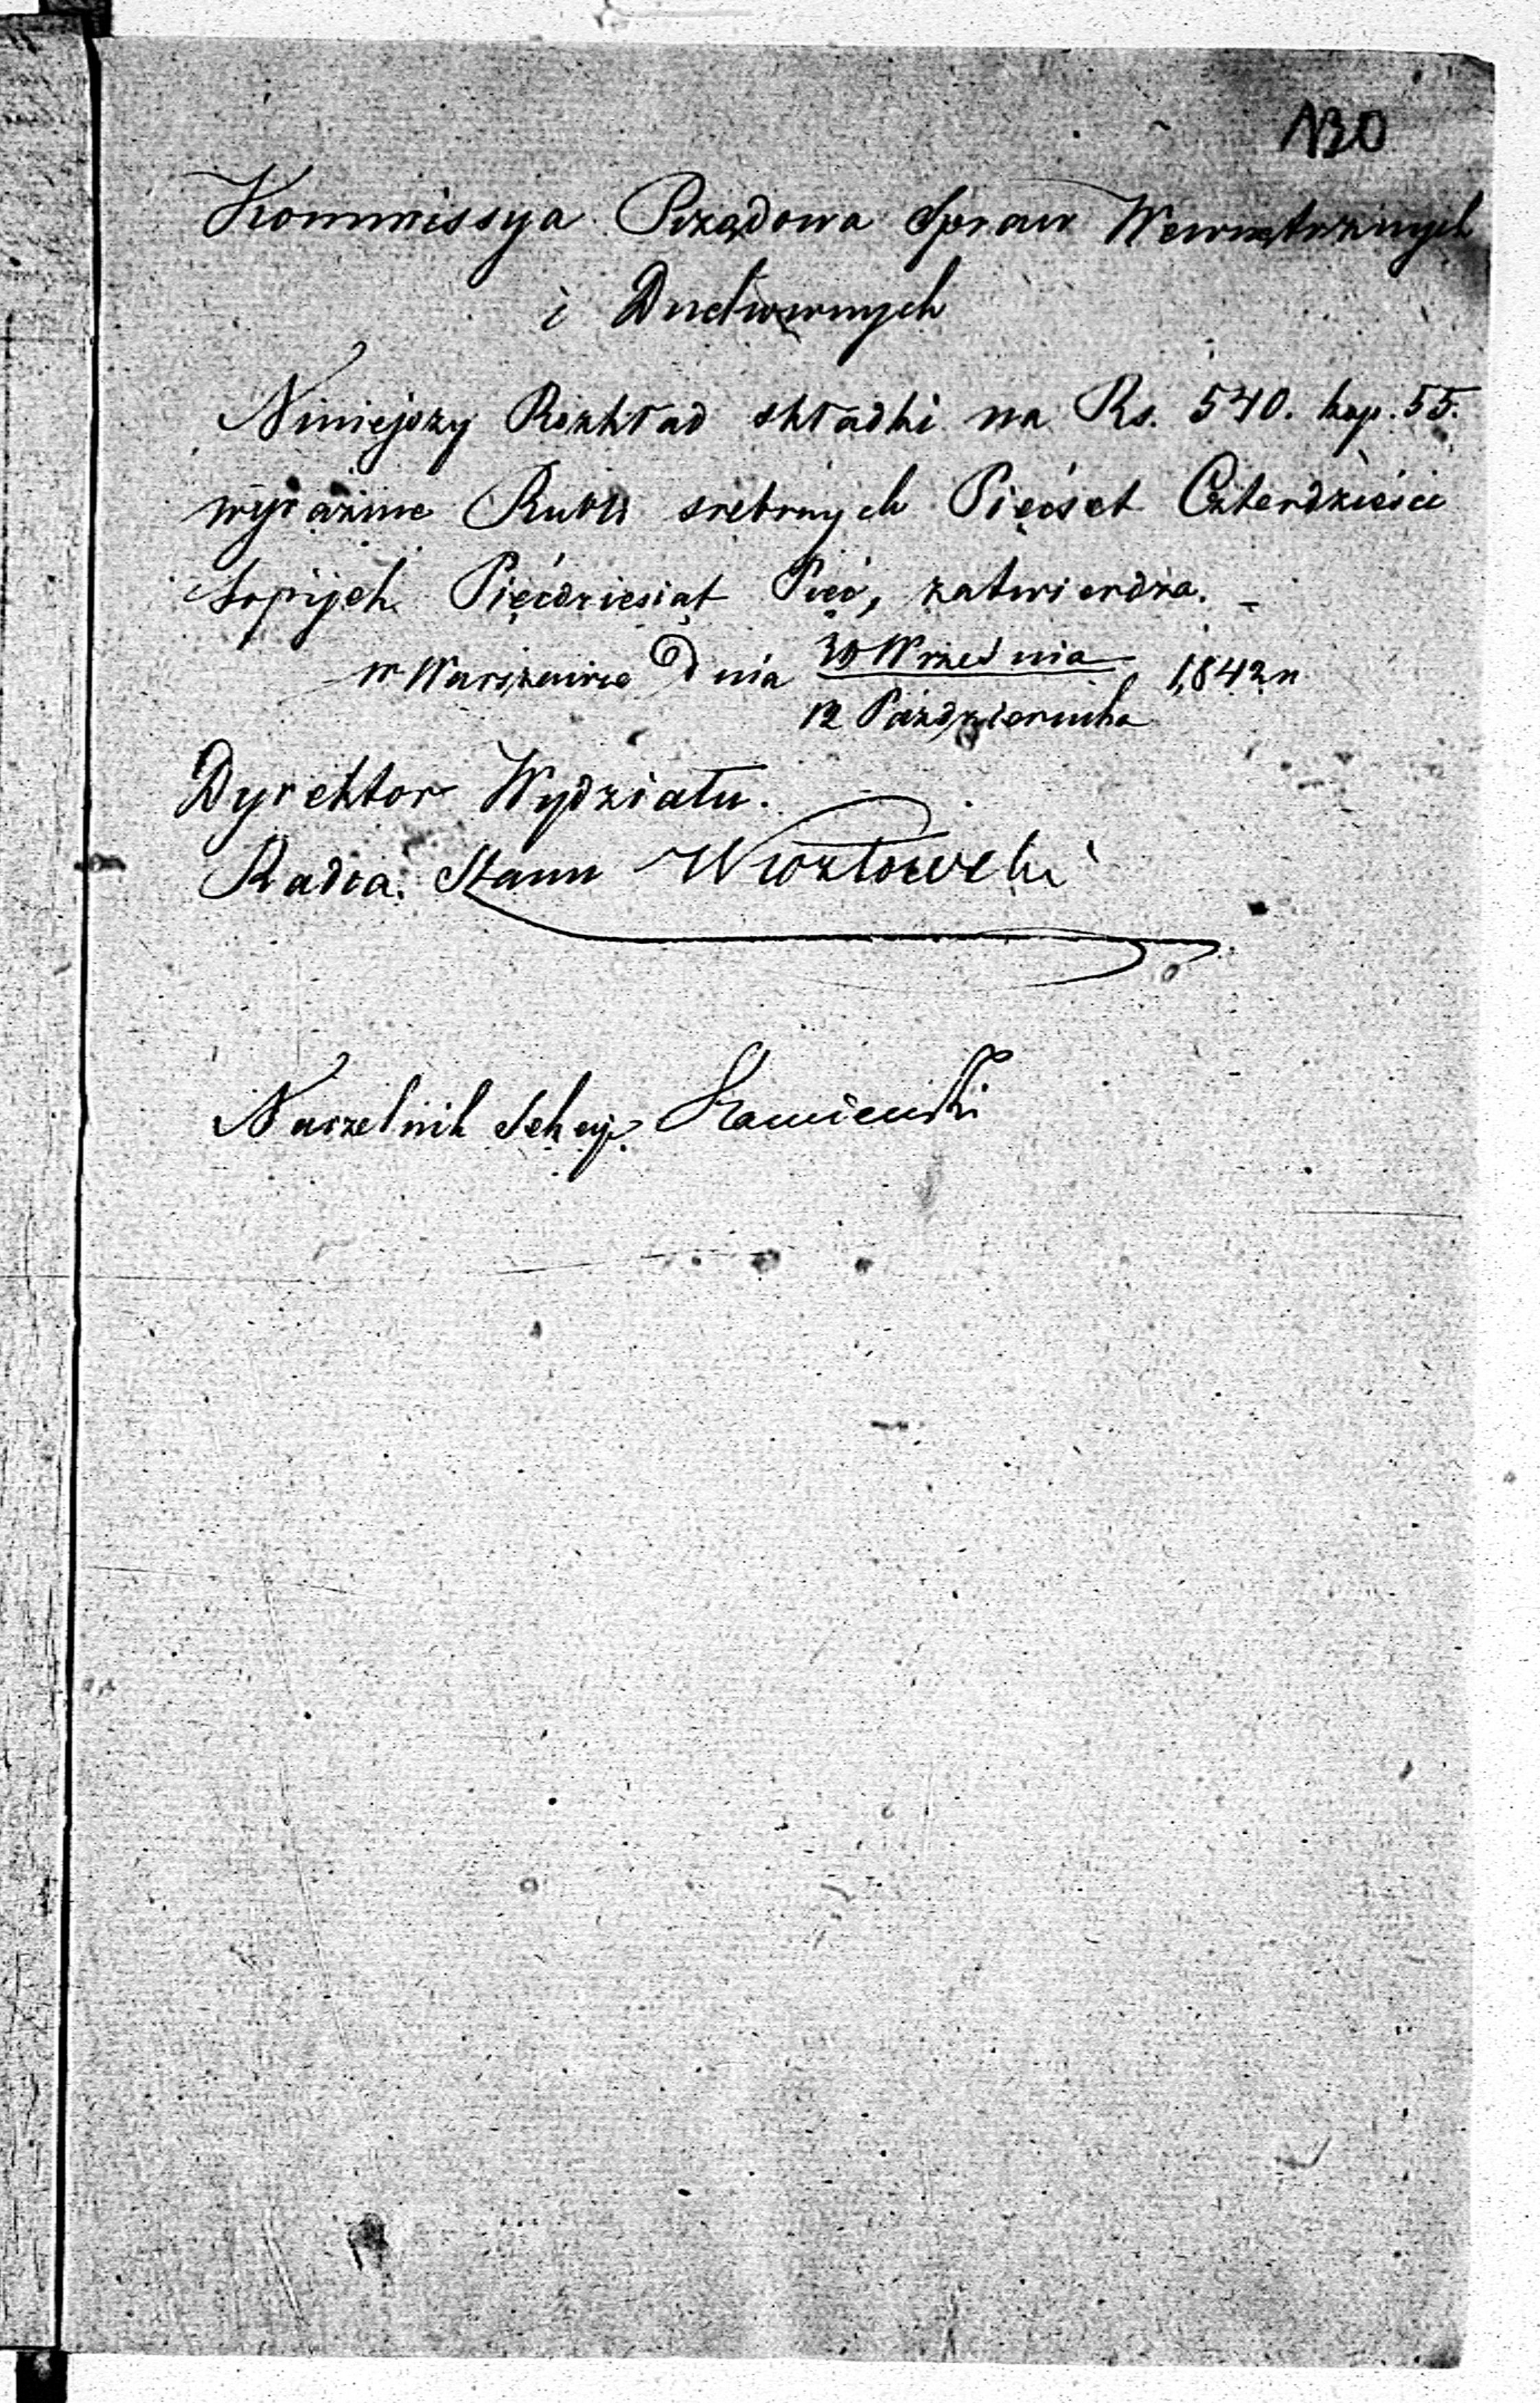 130
Kommissya Rządowa Spraw Wewnętrznych
i Duchownych
Niniejszy Rozkład składki na Rs. 540. kop. 55.
wyraźnie Rubli srebrnych Pięćset Czterdzieści
kopijek Pięćdziesiąt Pięć, zatwierdza. –
w Warszawie Dnia 30 Września 1842 r
12 Października
Dyrektor Wydziału.
Radca Stanu
Naczelnik Sekcyi